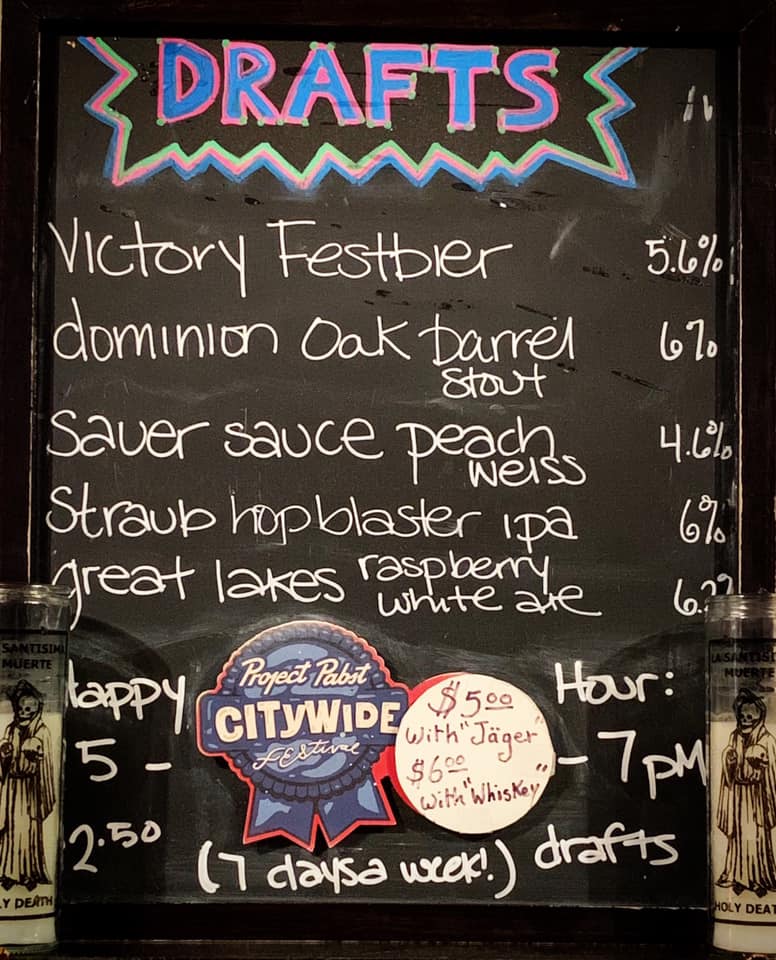 DRAFTS
Victory Festbier 5.6%
dominion Oak barrel 6%
stout
Sauer sauce peach 4.6%
weiss
Straub hopblaster ipa 6%
great lakes raspberry
white ale 6.2%
Happy Hour:
5 - - 7pm
2.50 (7 days a week!) drafts
Project Pabst
CITYWIDE
FESTIVAL
$5.00
with "Jäger"
$6.00
with "Whiskey"
LA SANTISI
MUERTE
HOLY DEAT
SANTISIM
MUERTE
LY DEATH